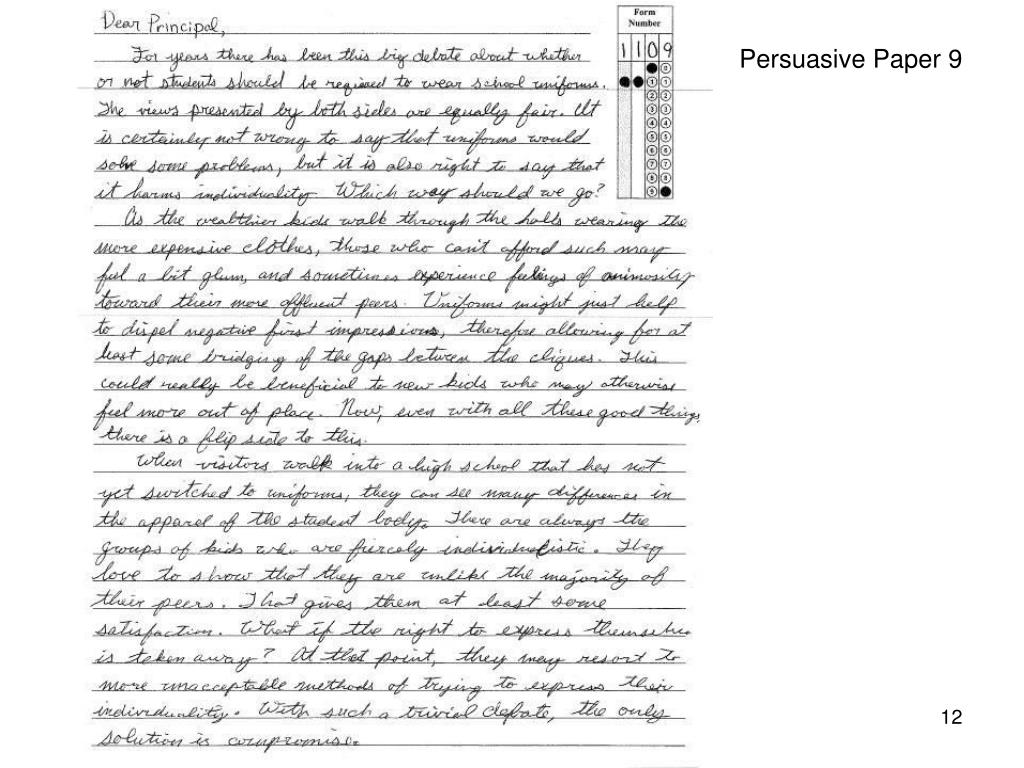 Dear Principal,
For years there has been this big debate about whether
or not students should be required to wear school uniforms.
The views presented by both sides are equally fair. It
is certainly not wrong to say that uniforms would
solve some problems, but it is also right to say that
it harms individuality. Which way should we go?
As the wealthier kids walk through the halls wearing the
more expensive clothes, those who can't afford such may
feel a bit glum, and sometimes experience feelings of animosity
toward their more affluent peers. Uniforms might just help
to dispel negative first impressions, therefore allowing for at
least some bridging of the gaps between the cliques. This
could really be beneficial to new kids who may otherwise
feel more out of place. Now, even with all these good things,
there is a flip side to this.
When visitors walk into a high school that has not
yet switched to uniforms, they can see many differences in
the apparel of the student body. There are always the
groups of kids who are fiercely individualistic. They
love to show that they are unlike the majority of
their peers. That gives them at least some
satisfaction. What if the right to express themselves
is taken away? At that point, they may resort to
more unacceptable methods of trying to express their
individuality. With such a trivial debate, the only
solution is compromise.
Form
Number
1 1 0 9
0
1 1
2 2
3 3
4 4
5 5
6 6
7 7
8 8
9
Persuasive Paper 9
12